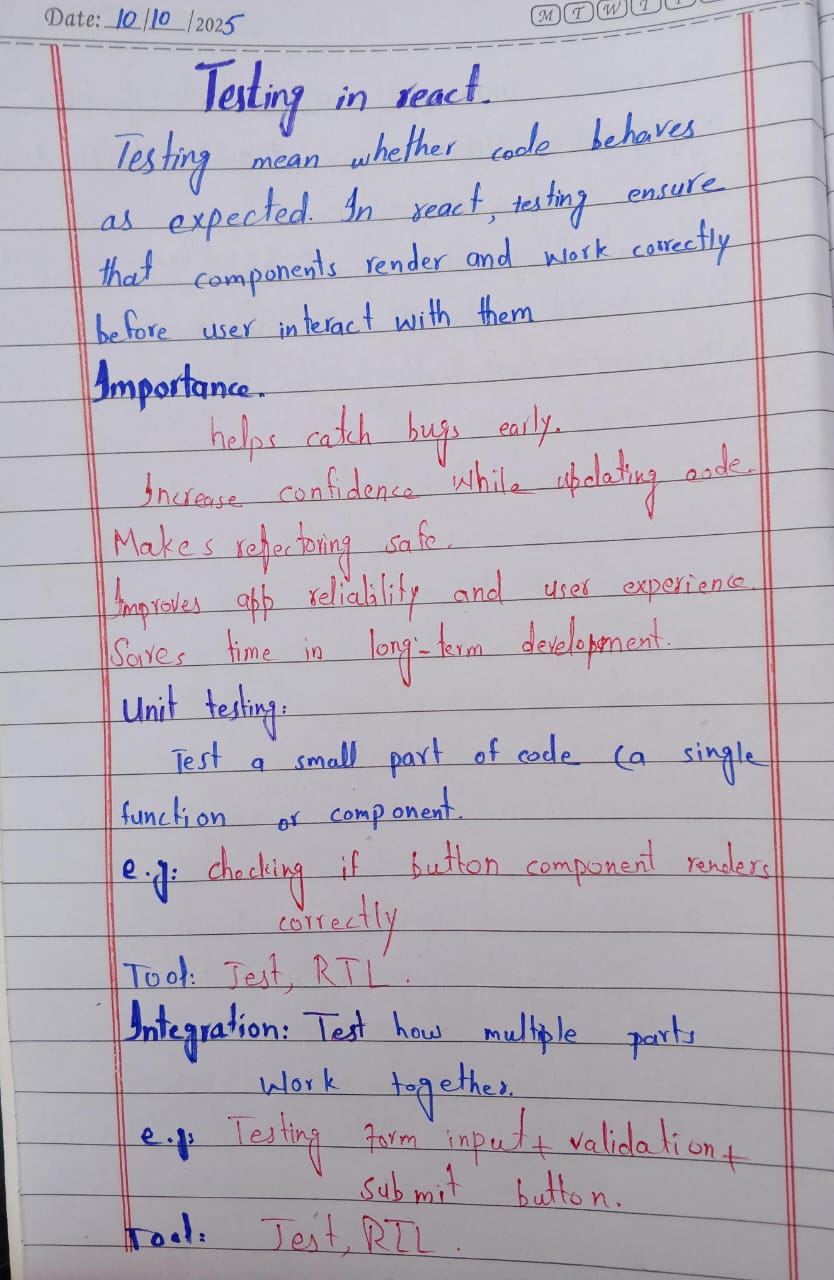 Date: 10/10/2025 M T W
Testing in react.
Testing mean whether code behaves
as expected. In react, testing ensure
that components render and work correctly
before user interact with them
Importance.
helps catch bugs early.
Increase confidence while updating code.
Makes refectoring safe.
Improves app reliability and user experience.
Saves time in long-term development.
Unit testing:
Test a small part of code (a single
function or component.
e.g: checking if button component renders
correctly
Tool: Jest, RTL.
Integration: Test how multiple parts
work together.
e.g: Testing form input + validation +
submit button.
Tool: Jest, RTL.